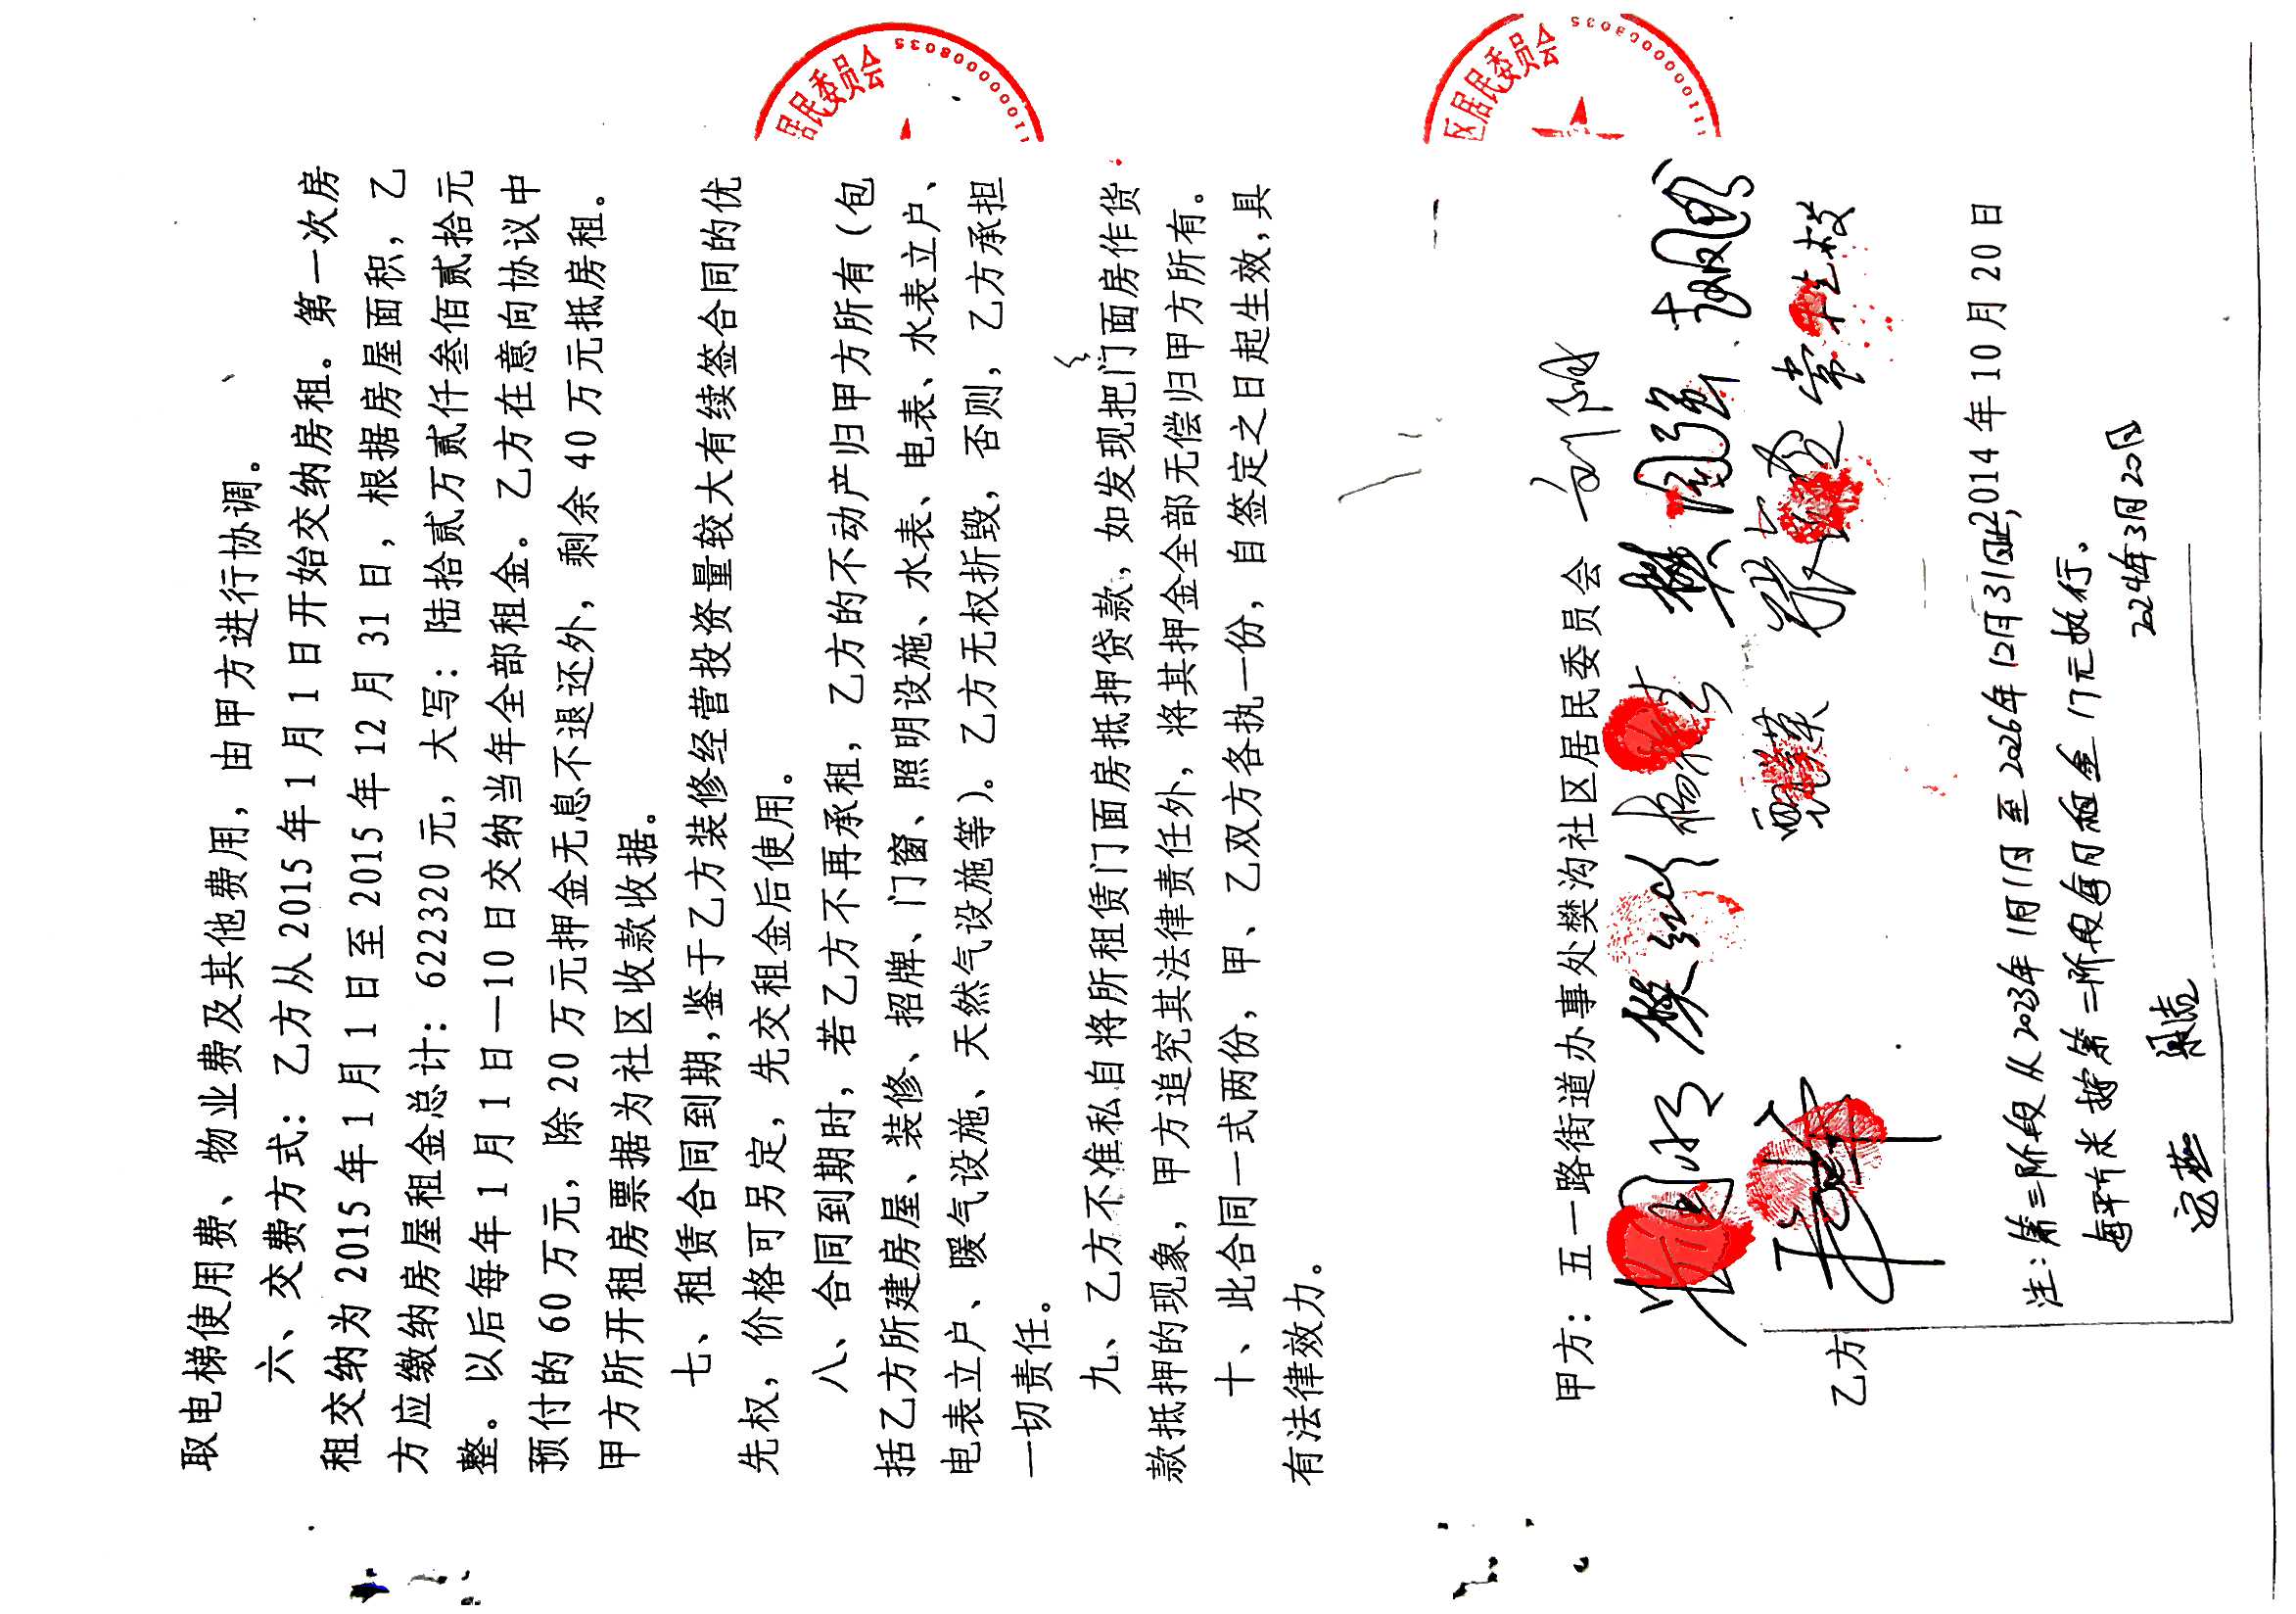 取电梯使用费、物业费及其他费用，由甲方进行协调。
六、交费方式：乙方从2015年1月1日开始交纳房租。第一次房
租交纳为2015年1月1日至2015年12月31日，根据房屋面积，乙
方应缴纳房屋租金总计：622320元，大写：陆拾贰万贰仟叁佰贰拾元
整。以后每年1月1日—10日交纳当年全部租金。乙方在意向协议中
预付的60万元，除20万元押金无息不退还外，剩余40万元抵房租。
甲方所开租房票据为社区收款收据。
七、租赁合同到期，鉴于乙方装修经营投资量较大有续签合同的优
先权，价格可另定，先交租金后使用。
八、合同到期时，若乙方不再承租，乙方的不动产归甲方所有（包
括乙方所建房屋、装修、招牌、门窗、照明设施、水表、电表、水表立户、
电表立户、暖气设施、天然气设施等）。乙方无权折毁，否则，乙方承担
一切责任。
九、乙方不准私自将所租赁门面房抵押贷款，如发现把门面房作货
款抵押的现象，甲方追究其法律责任外，将其押金全部无偿归甲方所有。
十、此合同一式两份，甲、乙双方各执一份，自签定之日起生效，具
有法律效力。
居民委员会
1100000008035
区居民委员会
甲方：五一路街道办事处樊沟社区居民委员会
乙方
2014年10月20日
注：第三阶段从2023年1月1日至2026年12月31日止，
每平方米按第二阶段每月租金17元执行。
2024年3月20日